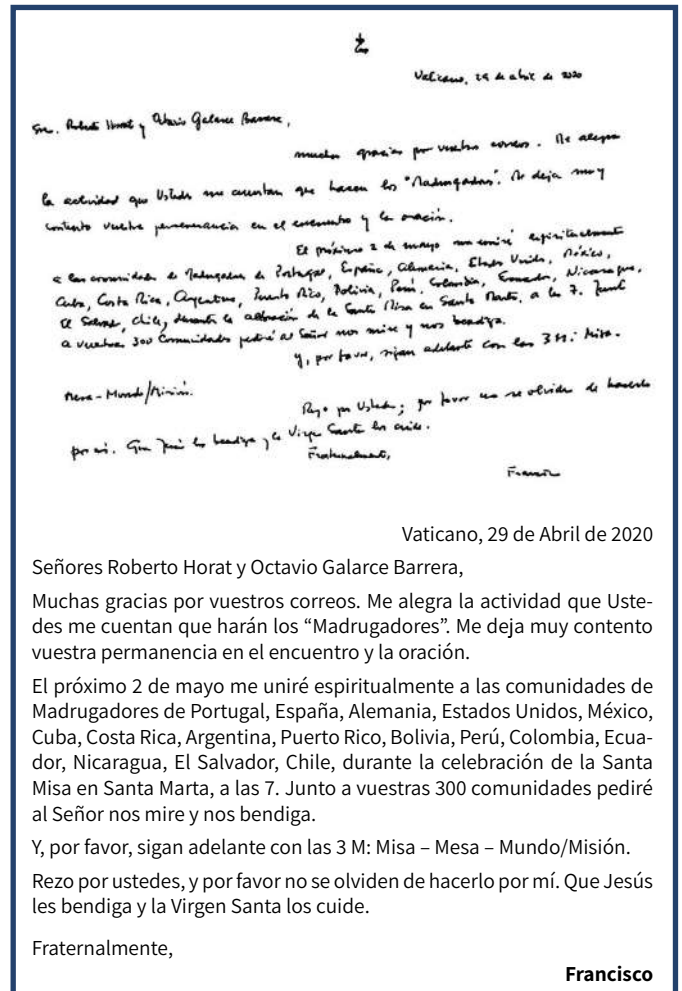 Vaticano, 29 de abril de 2020
Sres. Roberto Horat y Octavio Galarce Barrera,
muchas gracias por vuestros correos. Me alegra
la actividad que Ustedes me cuentan que hacen los "Madrugadores". Me deja muy
contento vuestra permanencia en el encuentro y la oración.
El próximo 2 de mayo me uniré espiritualmente
a las comunidades de Madrugadores de Portugal, España, Alemania, Estados Unidos, México,
Cuba, Costa Rica, Argentina, Puerto Rico, Bolivia, Perú, Colombia, Ecuador, Nicaragua,
El Salvador, Chile, durante la celebración de la Santa Misa en Santa Marta, a las 7. Junto
a vuestras 300 Comunidades pediré al Señor nos mire y nos bendiga.
Y, por favor, sigan adelante con las 3 M: Misa-
Mesa-Mundo/Misión.
Rezo por Ustedes; por favor no se olviden de hacerlo
por mí. Que Jesús los bendiga y la Virgen Santa los cuide.
Fraternalmente,
Francisco
Vaticano, 29 de Abril de 2020
Señores Roberto Horat y Octavio Galarce Barrera,
Muchas gracias por vuestros correos. Me alegra la actividad que Uste-
des me cuentan que harán los “Madrugadores”. Me deja muy contento
vuestra permanencia en el encuentro y la oración.
El próximo 2 de mayo me uniré espiritualmente a las comunidades de
Madrugadores de Portugal, España, Alemania, Estados Unidos, México,
Cuba, Costa Rica, Argentina, Puerto Rico, Bolivia, Perú, Colombia, Ecua-
dor, Nicaragua, El Salvador, Chile, durante la celebración de la Santa
Misa en Santa Marta, a las 7. Junto a vuestras 300 comunidades pediré
al Señor nos mire y nos bendiga.
Y, por favor, sigan adelante con las 3 M: Misa – Mesa – Mundo/Misión.
Rezo por ustedes, y por favor no se olviden de hacerlo por mí. Que Jesús
les bendiga y la Virgen Santa los cuide.
Fraternalmente,
Francisco